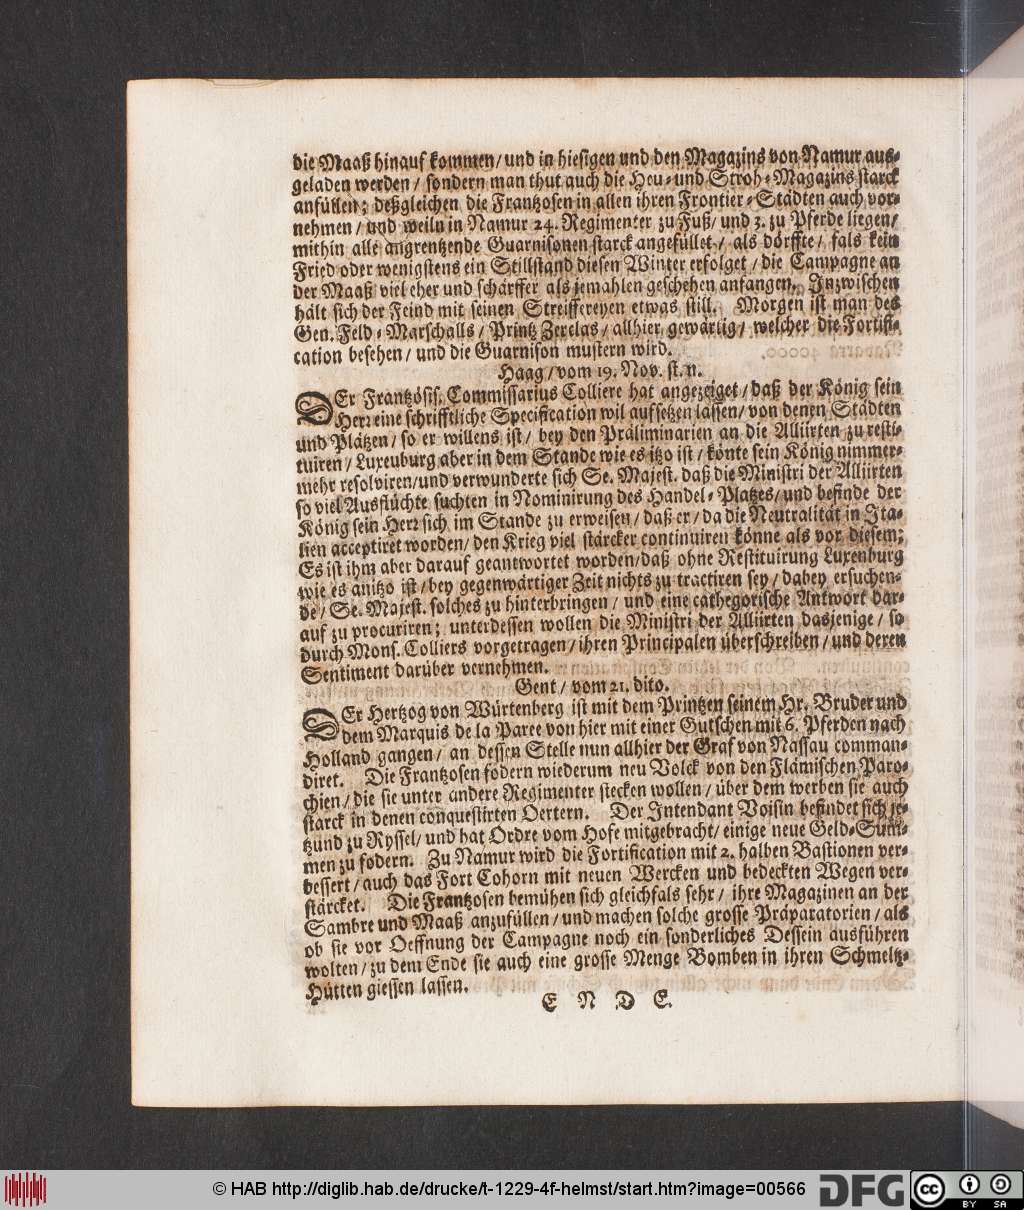 die Maaß hinauf kommen/ und in hiesigen und den Magazins von Namur aus-
geladen werden / sondern man thut auch die Heu- und Stroh-Magazins starck
anfüllen; deßgleichen die Frantzosen in allen ihren Frontier-Städten auch vor-
nehmen / und weiln in Namur 24. Regimenter zu Fuß/ und 3. zu Pferde liegen/
mithin alle angrentzende Guarnisonen starck angefüllet / als dörffte / fals kein
Fried oder wenigstens ein Stillstand diesen Winter erfolget / die Campagne an
der Maaß viel eher und schärffer als jemahlen geschehen anfangen. Inzwischen
hält sich der Feind mit seinen Streiffereyen etwas still. Morgen ist man des
Gen. Feld-Marschalls / Printz Zerclas / allhier gewärtig / welcher die Fortifi-
cation besehen / und die Guarnison mustern wird.
Haag / vom 19. Nov. st. n.
DEr Frantzösis. Commissarius Colliere hat angezeiget / daß der König sein
Herr eine schrifftliche Specification wil aufsetzen lassen / von denen Städten
und Plätzen / so er willens ist / bey den Präliminarien an die Alliirten zu resti-
tuiren / Luxenburg aber in dem Stande wie es itzo ist / könte sein König nimmer-
mehr resolviren/und verwunderte sich Se. Majest. daß die Ministri der Alliirten
so viel Ausflüchte suchten in Nominirung des Handel-Platzes/ und befinde der
König sein Herr sich im Stande zu erweisen / daß er / da die Neutralität in Ita-
lien acceptiret worden/ den Krieg viel stärcker continuiren könne als vor diesem;
Es ist ihm aber darauf geantwortet worden/daß ohne Restituirung Luxenburg
wie es anitzo ist / bey gegenwärtiger Zeit nichts zu tractiren sey / dabey ersuchen-
de / Se. Majest. solches zu hinterbringen / und eine cathegorische Antwort dar-
auf zu procuriren; unterdessen wollen die Ministri der Alliirten dasjenige / so
durch Mons. Colliers vorgetragen / ihren Principalen überschreiben / und deren
Sentiment darüber vernehmen.
Gent / vom 21. dito.
DEr Hertzog von Würtenberg ist mit dem Printzen seinem Hr. Bruder und
dem Marquis de la Paree von hier mit einer Gutschen mit 6. Pferden nach
Holland gangen / an dessen Stelle nun allhier der Graf von Nassau comman-
diret. Die Frantzosen födern wiederum neu Volck von den Flämischen Paro-
chien / die sie unter andere Regimenter stecken wollen / über dem werben sie auch
starck in denen conquestirten Oertern. Der Intendant Voisin befindet sich je-
tzund zu Ryssel / und hat Ordre vom Hofe mitgebracht/ einige neue Geld-Sum-
men zu fodern. Zu Namur wird die Fortification mit 2. halben Bastionen ver-
bessert / auch das Fort Cohorn mit neuen Wercken und bedeckten Wegen ver-
stärcket. Die Frantzosen bemühen sich gleichfals sehr / ihre Magazinen an der
Sambre und Maaß anzufüllen / und machen solche grosse Präparatorien / als
ob sie vor Oeffnung der Campagne noch ein sonderliches Dessein ausführen
wolten / zu dem Ende sie auch eine grosse Menge Bomben in ihren Schmeltz-
Hütten giessen lassen.
E N D E.
© HAB http://diglib.hab.de/drucke/t-1229-4f-helmst/start.htm?image=00566
DFG
cc
BY SA